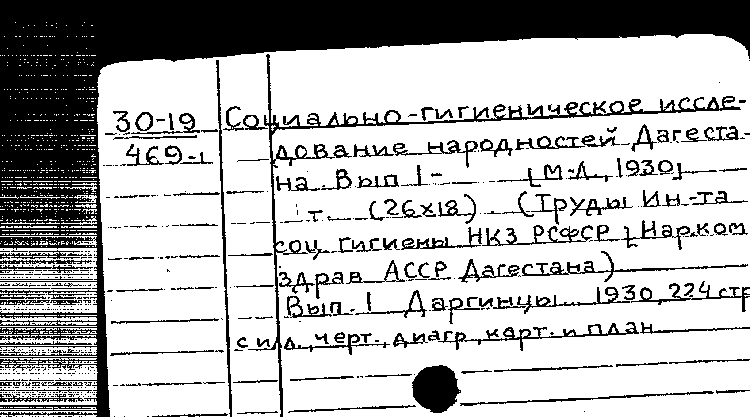 30-19 Социально-гигиеническое иссле-
469-1 дование народностей Дагеста-
на. Вып 1- [М-Л., 1930]
т. (26х18). (Труды Ин-та
соц. гигиены НКЗ РСФСР [Нарком
здрав АССР Дагестана)
Вып. 1 Даргинцы. 1930, 224 стр
с илл., черт., диагр., карт. и план